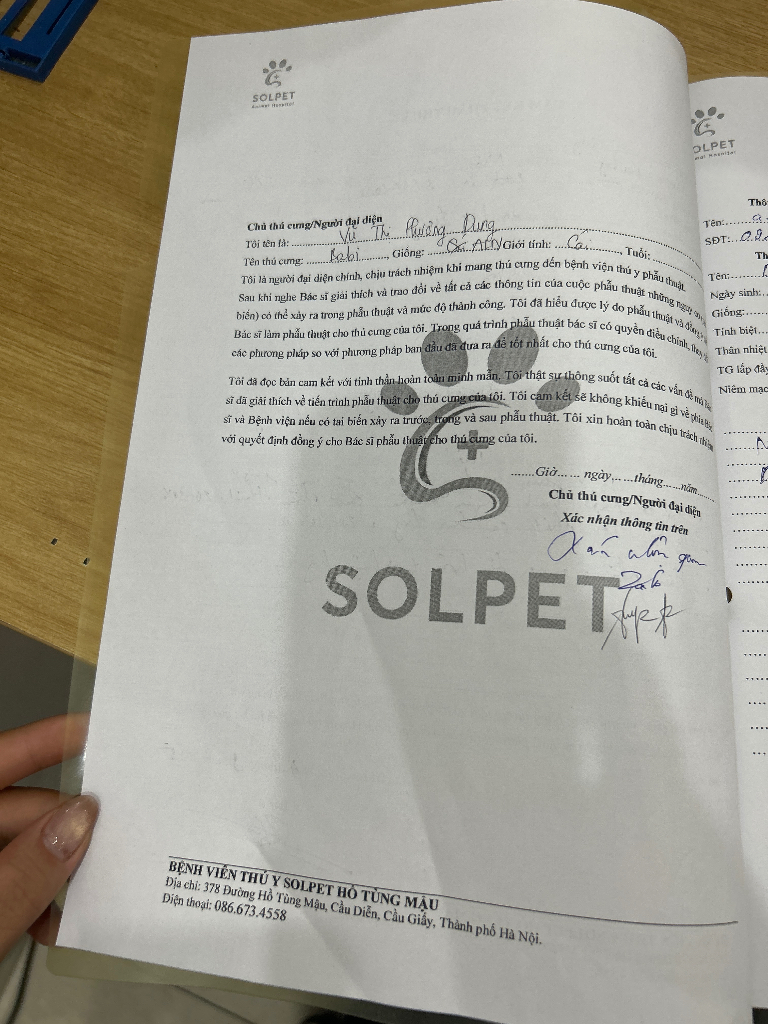 SOLPET
Animal Hospital
Chủ thú cưng/Người đại diện
Tôi tên là: Vũ Thị Phương Dung
Tên thú cưng: Kabi, Giống: Giới tính: Cái, Tuổi:
Tôi là người đại diện chính, chịu trách nhiệm khi mang thú cưng đến bệnh viện thú y phẫu thuật.
Sau khi nghe Bác sĩ giải thích và trao đổi về tất cả các thông tin của cuộc phẫu thuật những nguy
biến) có thể xảy ra trong phẫu thuật và mức độ thành công. Tôi đã hiểu được lý do phẫu thuật và
Bác sĩ làm phẫu thuật cho thú cưng của tôi. Trong quá trình phẫu thuật bác sĩ có quyền điều chỉnh,
các phương pháp so với phương pháp ban đầu đã đưa ra để tốt nhất cho thú cưng của tôi.
Tôi đã đọc bản cam kết với tinh thần hoàn toàn minh mẫn. Tôi thật sự thông suốt tất cả các vấn đề mà Bác
sĩ đã giải thích về tiến trình phẫu thuật cho thú cưng của tôi. Tôi cam kết sẽ không khiếu nại gì về phía Bác
sĩ và Bệnh viện nếu có tai biến xảy ra trước, trong và sau phẫu thuật. Tôi xin hoàn toàn chịu trách nhiệm
với quyết định đồng ý cho Bác sĩ phẫu thuật cho thú cưng của tôi.
.......Giờ...... ngày......tháng......năm......
Chủ thú cưng/Người đại diện
Xác nhận thông tin trên
Xác nhận qua
Zalo
SOLPET
BỆNH VIỆN THÚ Y SOLPET HỒ TÙNG MẬU
Địa chỉ: 378 Đường Hồ Tùng Mậu, Cầu Diễn, Cầu Giấy, Thành phố Hà Nội.
Điện thoại: 086.673.4558
OLPET
Thô
Tên:
SĐT:
Th
Tên:
Ngày sinh:
Giống:
Tính biệt
Thân nhiệt
TG lấp đầy
Niêm mạc